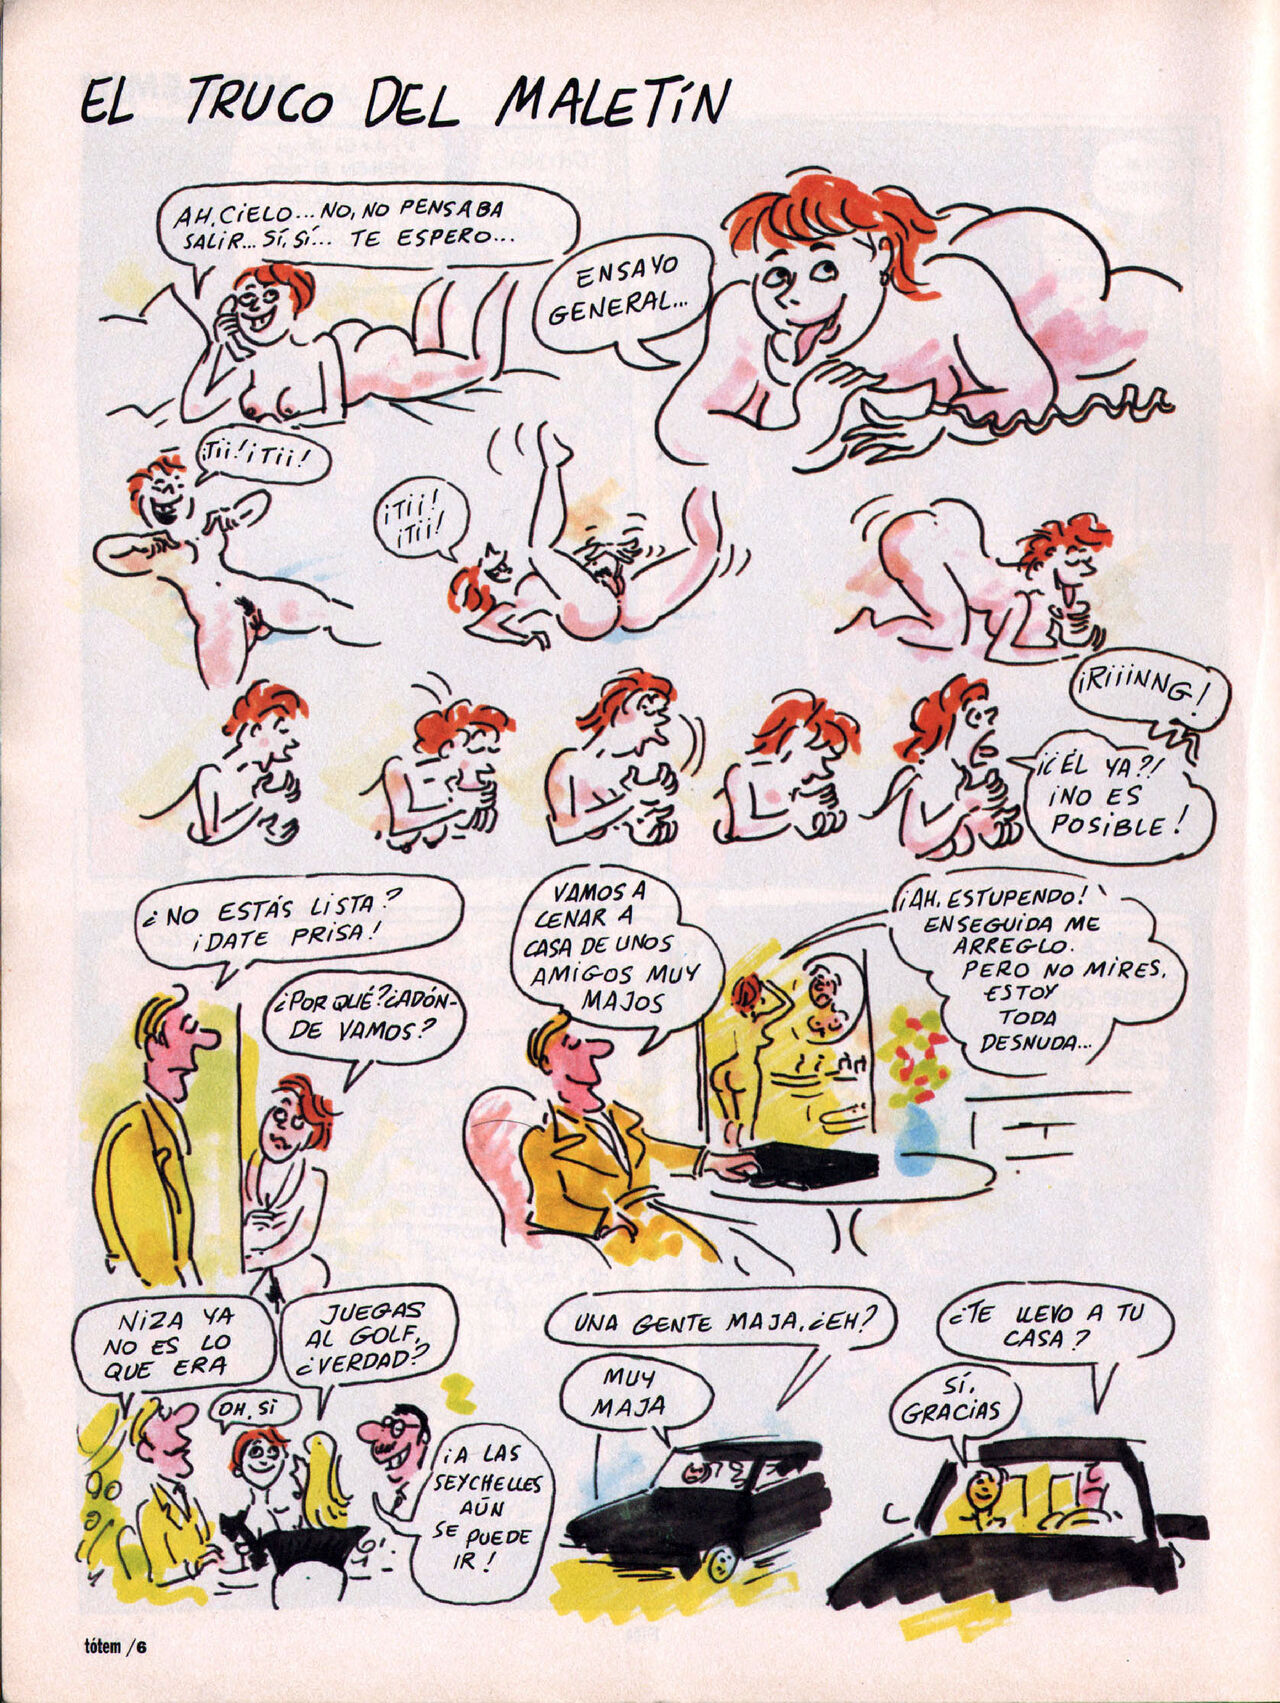 EL TRUCO DEL MALETÍN
AH, CIELO... NO, NO PENSABA
SALIR... SÍ, SÍ... TE ESPERO...
ENSAYO
GENERAL...
¡Tii! ¡Tii!
¡Tii!
¡Tii!
¡RIIINNG!
¡¿ÉL YA?!
¡NO ES
POSIBLE!
¿NO ESTÁS LISTA?
¡DATE PRISA!
¿POR QUÉ? ¿ADÓN-
DE VAMOS?
VAMOS A
CENAR A
CASA DE UNOS
AMIGOS MUY
MAJOS
¡AH, ESTUPENDO!
ENSEGUIDA ME
ARREGLO.
PERO NO MIRES,
ESTOY
TODA
DESNUDA...
NIZA YA
NO ES LO
QUE ERA
OH, SI
JUEGAS
AL GOLF,
¿VERDAD?
¡A LAS
SEYCHELLES
AÚN
SE PUEDE
IR!
UNA GENTE MAJA, ¿EH?
MUY
MAJA
¿TE LLEVO A TU
CASA?
SÍ,
GRACIAS
tótem /6